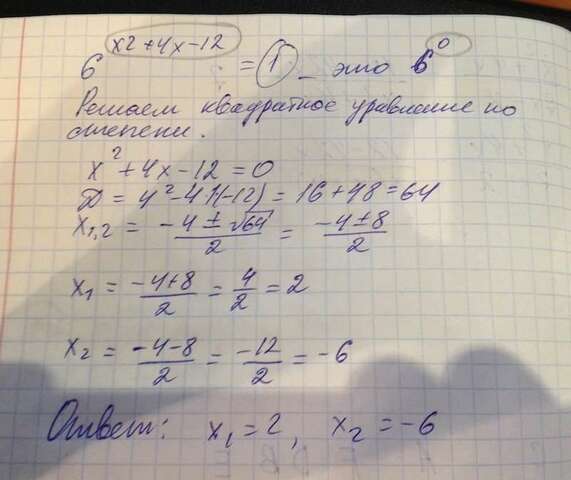 6^(x2+4x-12) = 1 - это 6^0
Решаем квадратное уравнение по
степени.
x²+4x-12=0
D = 4²-4·1(-12) = 16+48=64
x1,2 = (-4±√64)/2 = (-4±8)/2
x1 = (-4+8)/2 = 4/2 = 2
x2 = (-4-8)/2 = -12/2 = -6
Ответ: x1=2, x2=-6